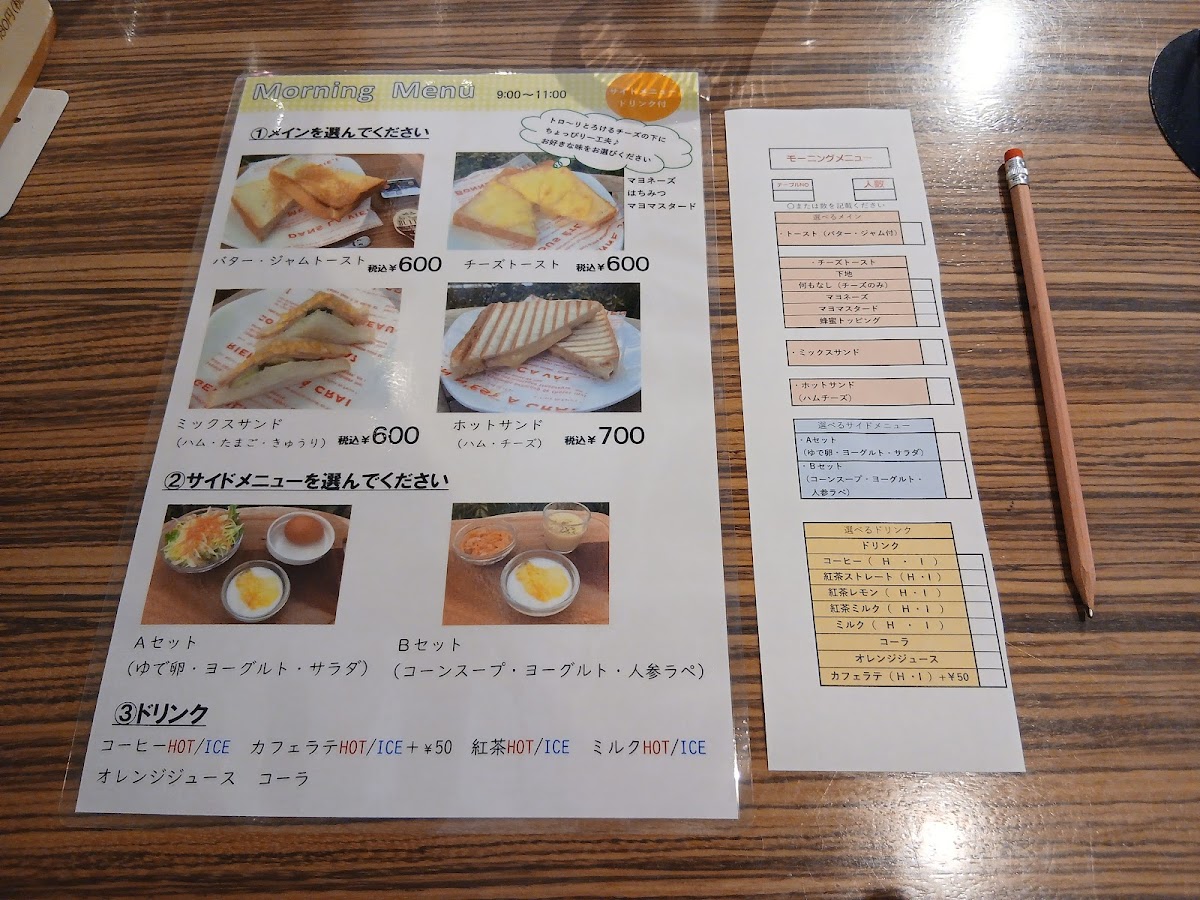 Morning Menu 9:00～11:00
サイドメニュー
ドリンク付
①メインを選んでください
トロ～リとろけるチーズの下に
ちょっぴり一工夫♪
お好きな味をお選びください
マヨネーズ
はちみつ
マヨマスタード
バター・ジャムトースト 税込¥600
チーズトースト 税込¥600
ミックスサンド
（ハム・たまご・きゅうり） 税込¥600
ホットサンド
（ハム・チーズ） 税込¥700
②サイドメニューを選んでください
Aセット
（ゆで卵・ヨーグルト・サラダ）
Bセット
（コーンスープ・ヨーグルト・人参ラペ）
③ドリンク
コーヒーHOT/ICE カフェラテHOT/ICE＋¥50 紅茶HOT/ICE ミルクHOT/ICE
オレンジジュース コーラ
モーニングメニュー
テーブルNO 人数
〇または数を記載ください
選べるメイン
・トースト（バター・ジャム付）
・チーズトースト
下地
何もなし（チーズのみ）
マヨネーズ
マヨマスタード
蜂蜜トッピング
・ミックスサンド
・ホットサンド
（ハムチーズ）
選べるサイドメニュー
・Aセット
（ゆで卵・ヨーグルト・サラダ）
・Bセット
（コーンスープ・ヨーグルト・
人参ラペ）
選べるドリンク
ドリンク
コーヒー（ H ・ I ）
紅茶ストレート（H・I）
紅茶レモン（ H・I ）
紅茶ミルク（ H・I ）
ミルク（ H ・ I ）
コーラ
オレンジジュース
カフェラテ（H・I）＋¥50